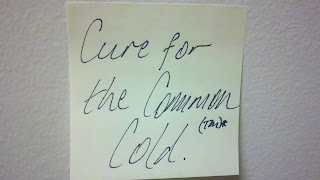 Cure for
the Common
Cold.